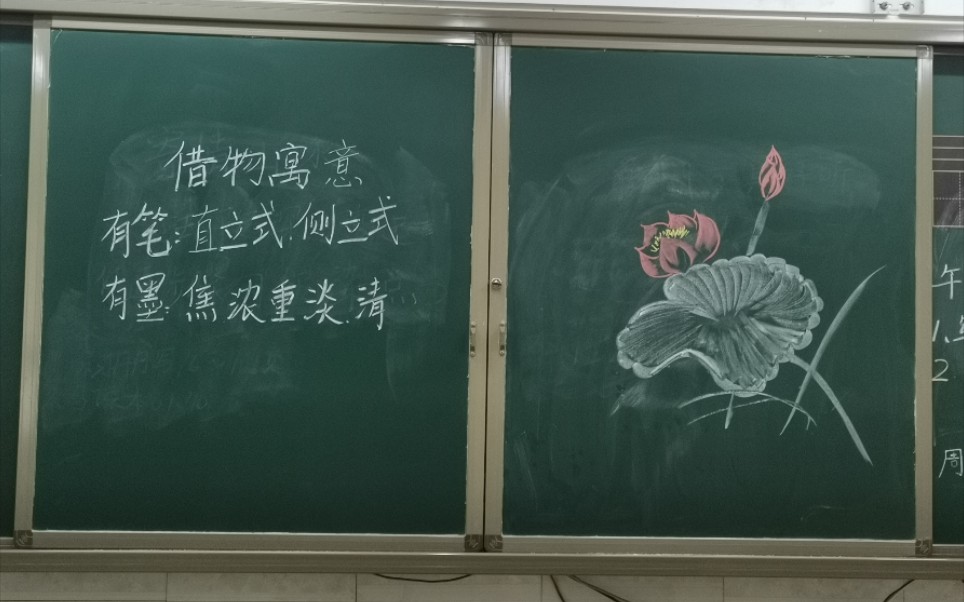 借物寓意
有笔:直立式.侧立式
有墨:焦浓重淡.清
午
1.
2
周